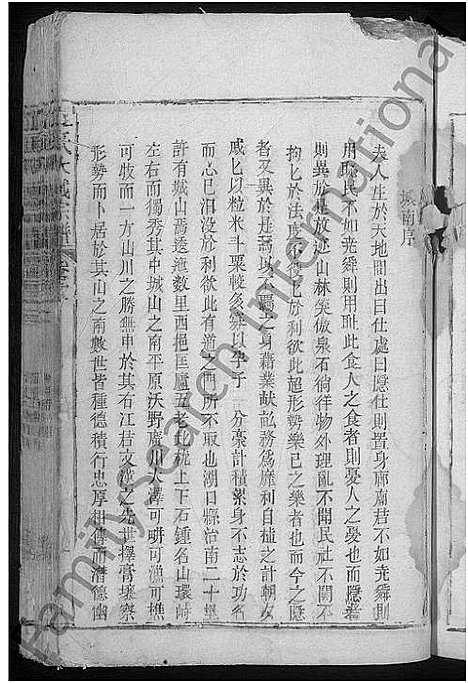 城南序
夫人生於天地間出曰仕處曰隱仕則置身廊廟君不如堯舜則
用恥民不如堯舜則用恥此食人之食者則憂人之憂也而隱者
則異於是放迹山林笑傲泉石徜徉物外理亂不聞民社不關不
拘匕於法度不匕於利欲此超形勢樂己之樂者也而今之隱
者又異於是以不羈之身藉業献訟務為靡利自植之計朝夕
戚匕以粒米斗粟較多以半子分毫計積絜身不志於功名
而心已汨沒於利欲此有道之所不取也湖口縣治南二十里
許有城山焉透迤数里西挹匡廬五老北枕上下石鍾名山環峙
左右而獨秀其中城山之南平原沃野廣川大澤可畊可漁可樵
可牧而一方山川之勝無出於其有江桔文漢之先世擇膏壤察
形勢而卜居於其山之南数世皆種德積行忠厚相傳而潛德幽
氏大成宗譜
FamilySearch International